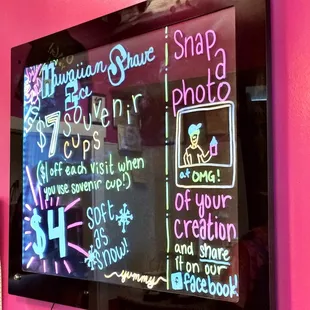 Hawaiian Shave
Ice
$7 Souvenir
cups
($1 off each visit when
you use sovenir cup!)
$4
soft
as
snow!
yummy
Snap
a
photo
at OMG!
of your
creation
and share
it on our
facebook!